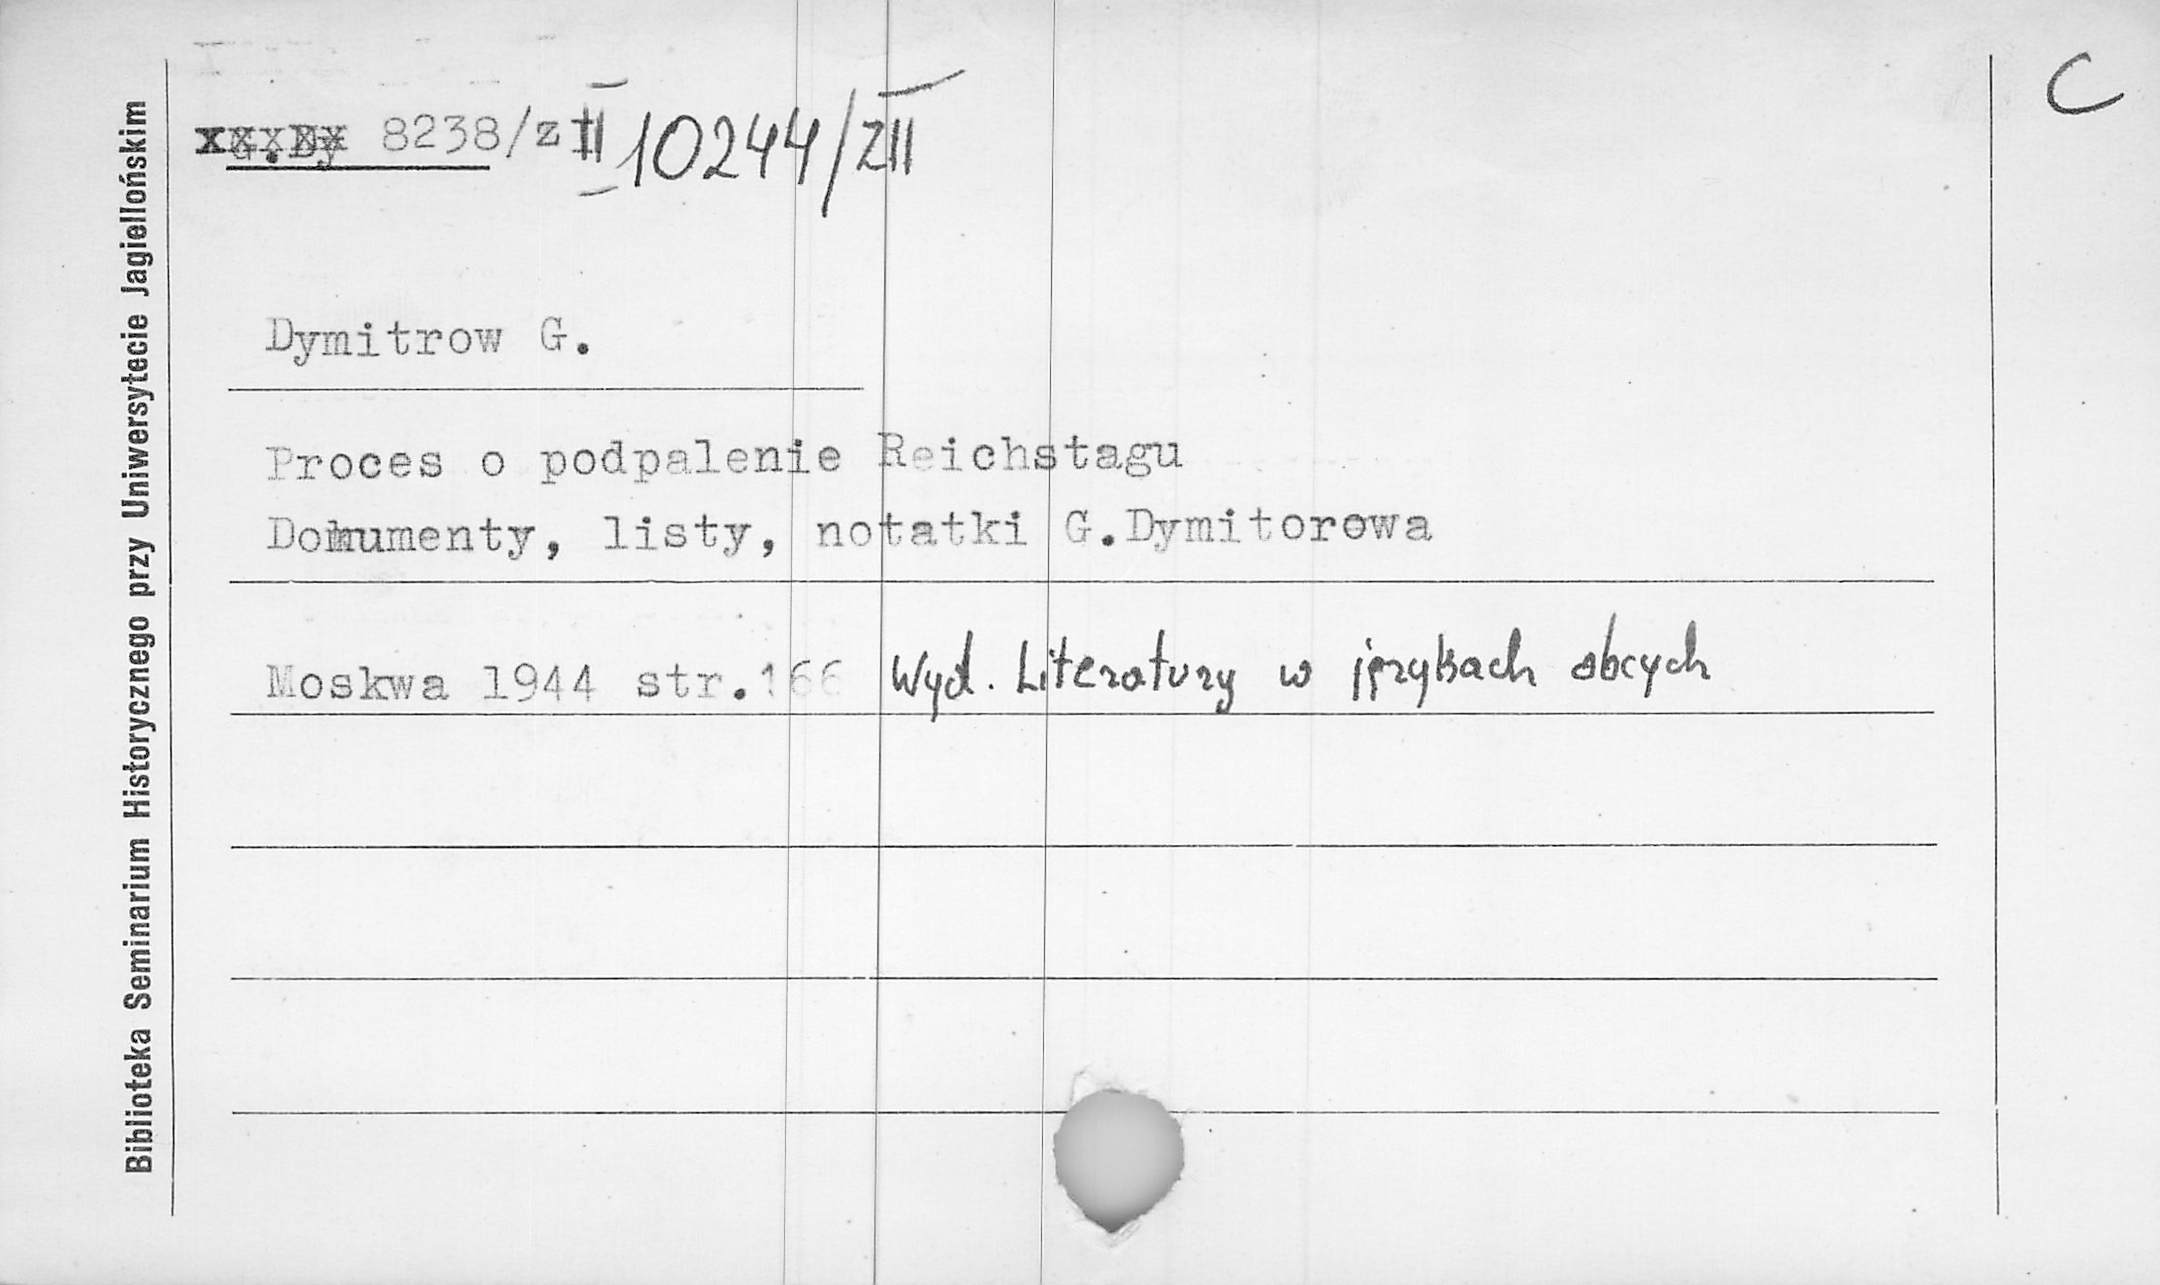 C
8238/z II 10244/ZII
Dymitrow G.
Proces o podpalenie Reichstagu
Dokumenty, listy, notatki G.Dymitorowa
Moskwa 1944 str.166 Wyd. Literatury w językach obcych
Biblioteka Seminarium Historycznego przy Uniwersytecie Jagiellońskim